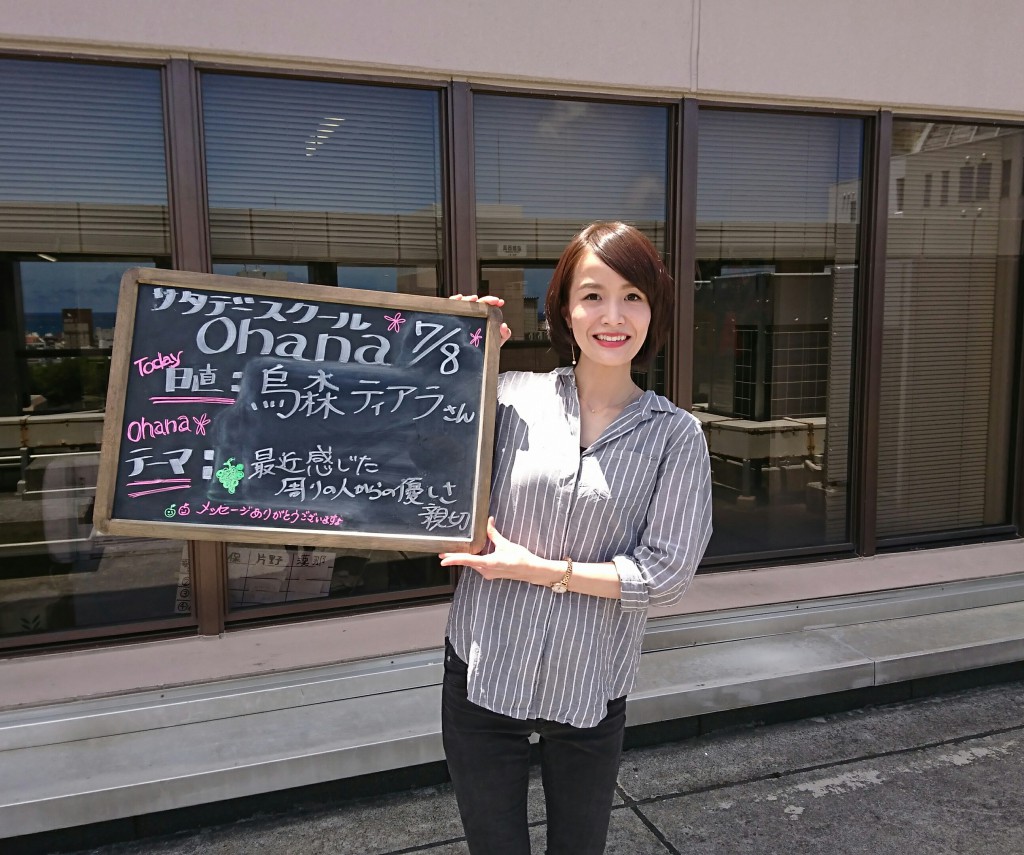 サタデースクール
Ohana 7/8
Today
日直: 烏森ティアラさん
Ohana
テーマ: 最近感じた
周りの人からの優しさ
親切
メッセージありがとうございます
片野